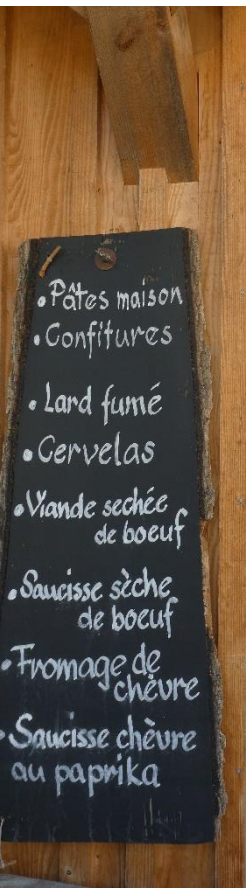 • Pâtes maison
• Confitures
• Lard fumé
• Cervelas
• Viande sechée
de boeuf
• Saucisse sèche
de boeuf
• Fromage de
chèvre
• Saucisse chèvre
au paprika